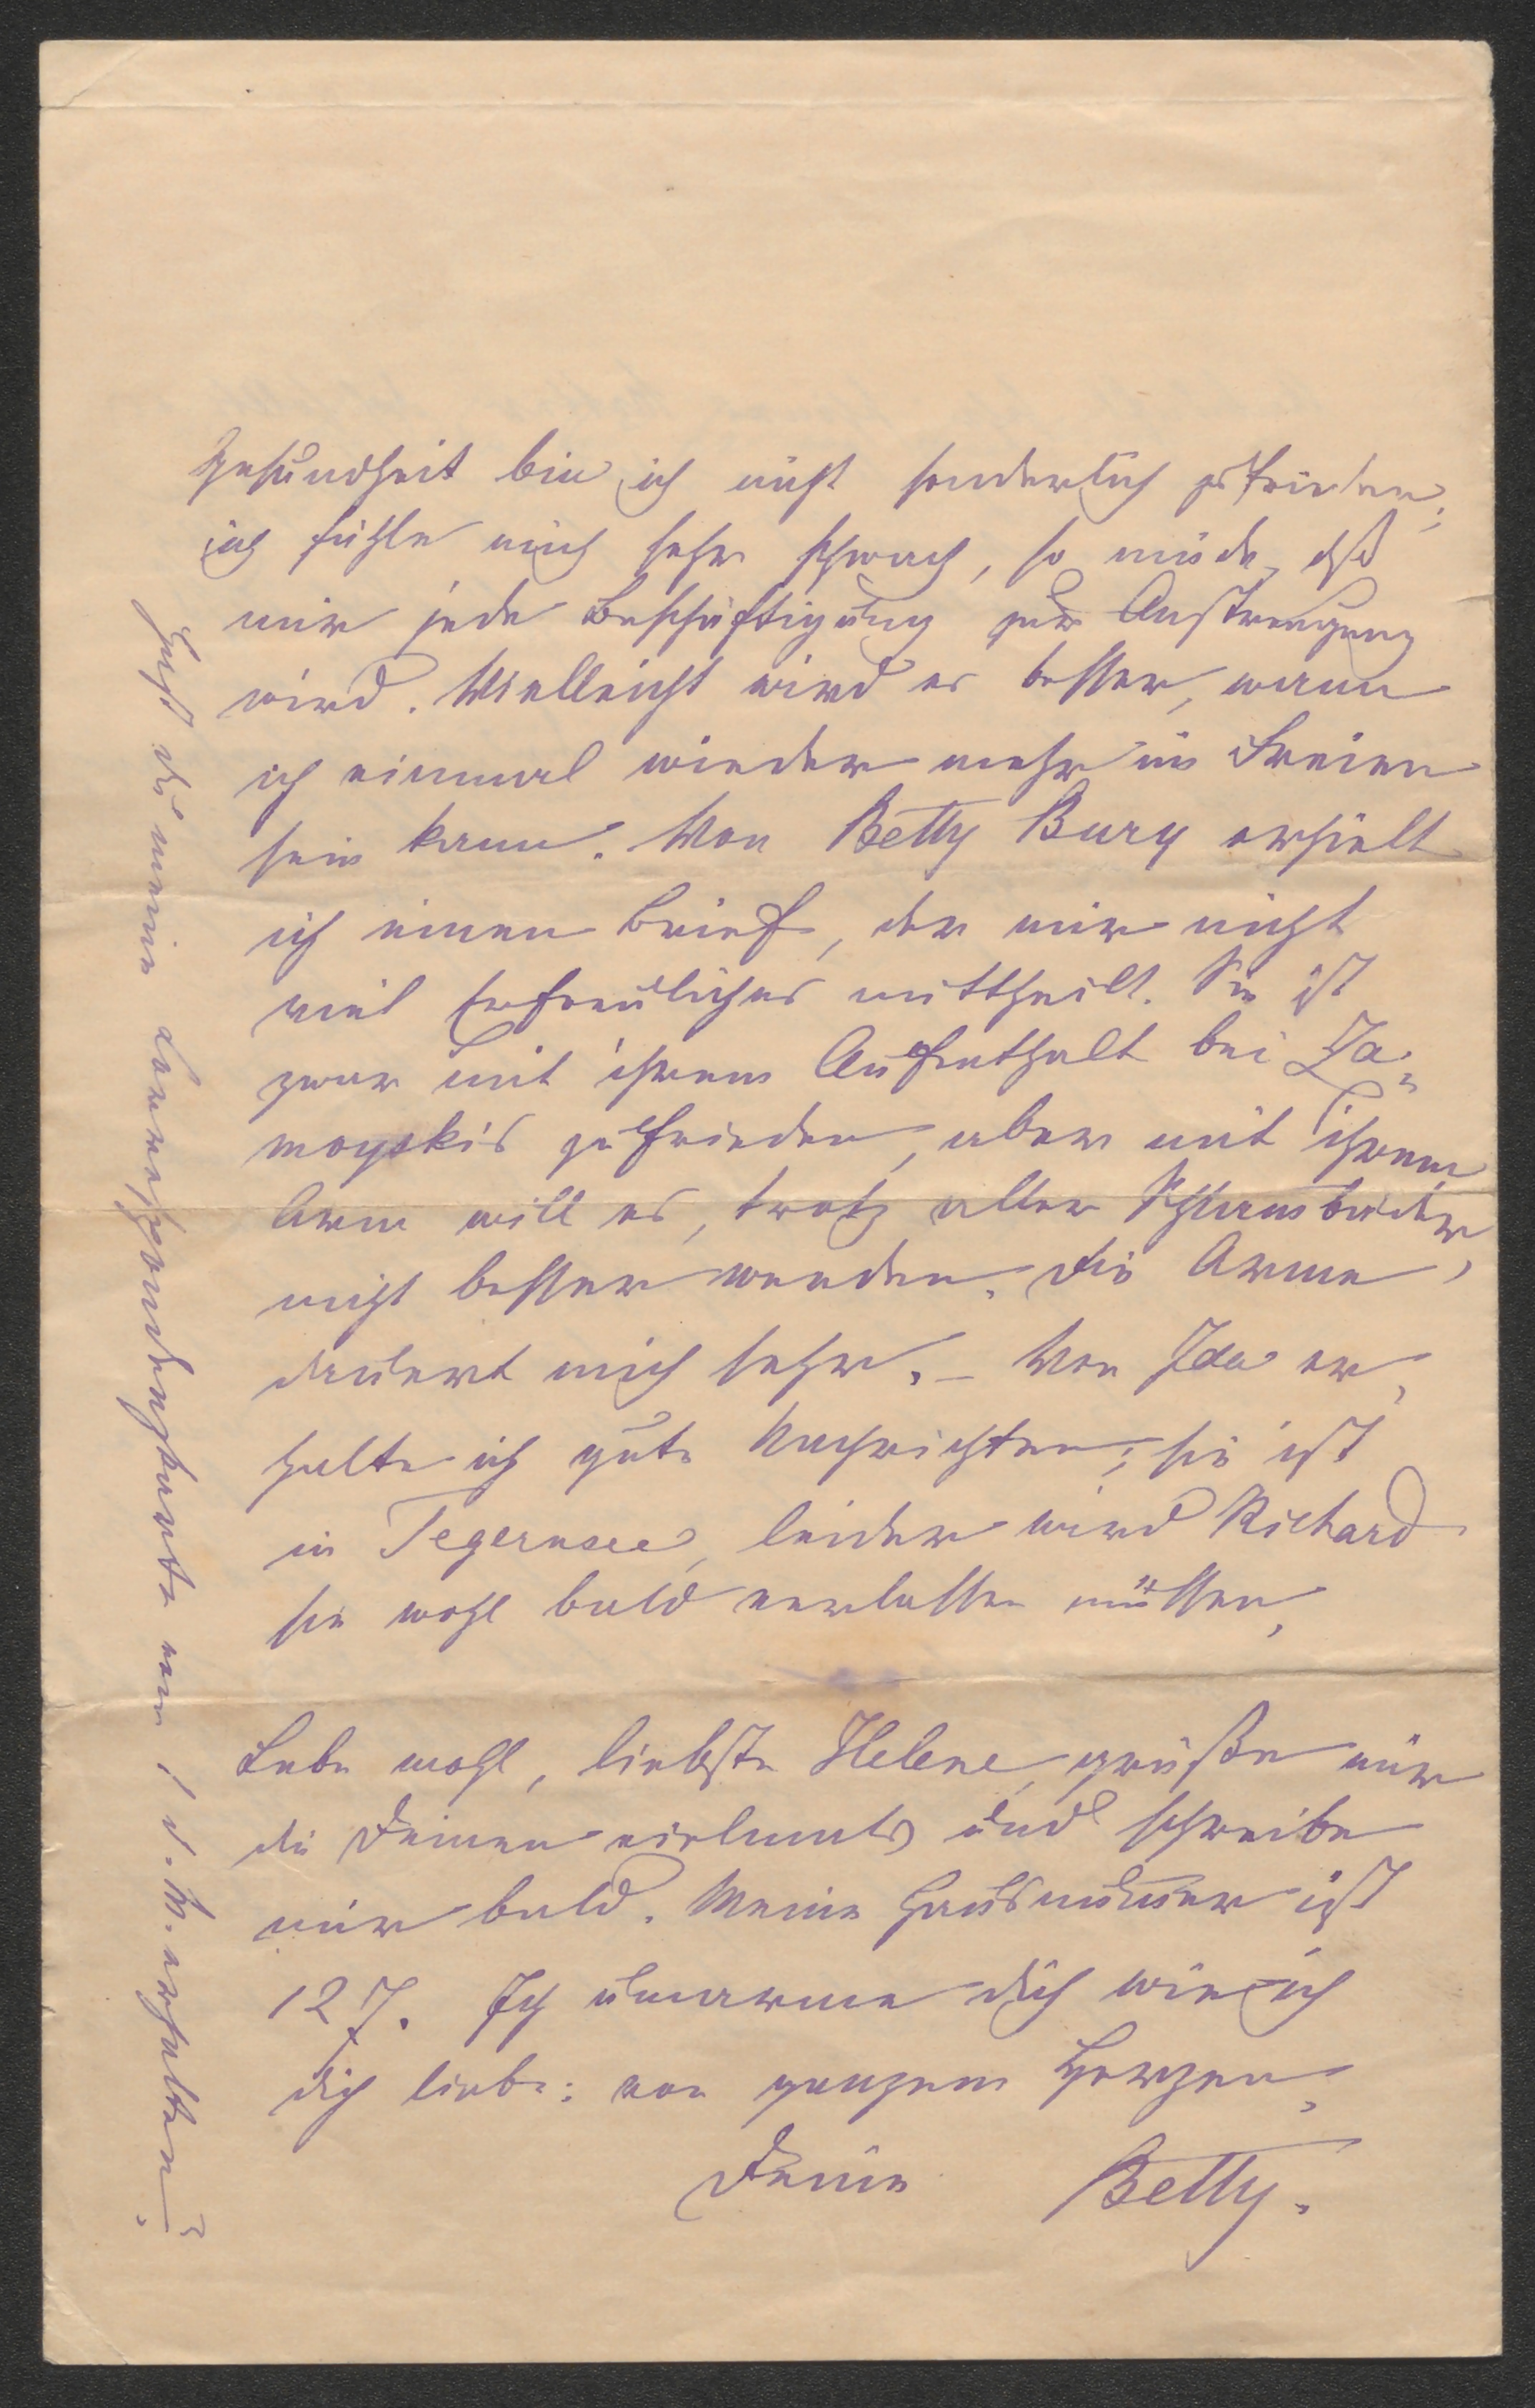 Gesundheit bin ich nicht sonderlich zufrieden,
ich fühle mich sehr schwach, so müde, dß
mir jede Beschäftigung zur Anstrengung
wird. Vielleicht wird es besser, wenn
ich einmal wieder mehr im Freien
sein kann. Von Betty Bury erhielt
ich einen Brief, der mir nicht
viel Erfreuliches mittheilt. Sie ist
zwar mit ihrem Aufenthalt bei Za-
moyskis zufrieden, aber mit ihrem
Arm will es, trotz aller Schlammbäder,
nicht besser werden. Die Arme
dauert mich sehr. – Von Ida er-
halte ich gute Nachrichten; sie ist
in Tegernsee, leider wird Richard
sie wohl bald verlassen müssen.
Lebe wohl, liebste Helene, grüße mir
die Deinen vielmals und schreibe
mir bald. Meine Hausnummer ist
127. Ich umarme dich wie ich
dich liebe: von ganzem Herzen.
Deine Betty.
Hast du meine Correspondenzkarte vom 1 d. M. erhalten?